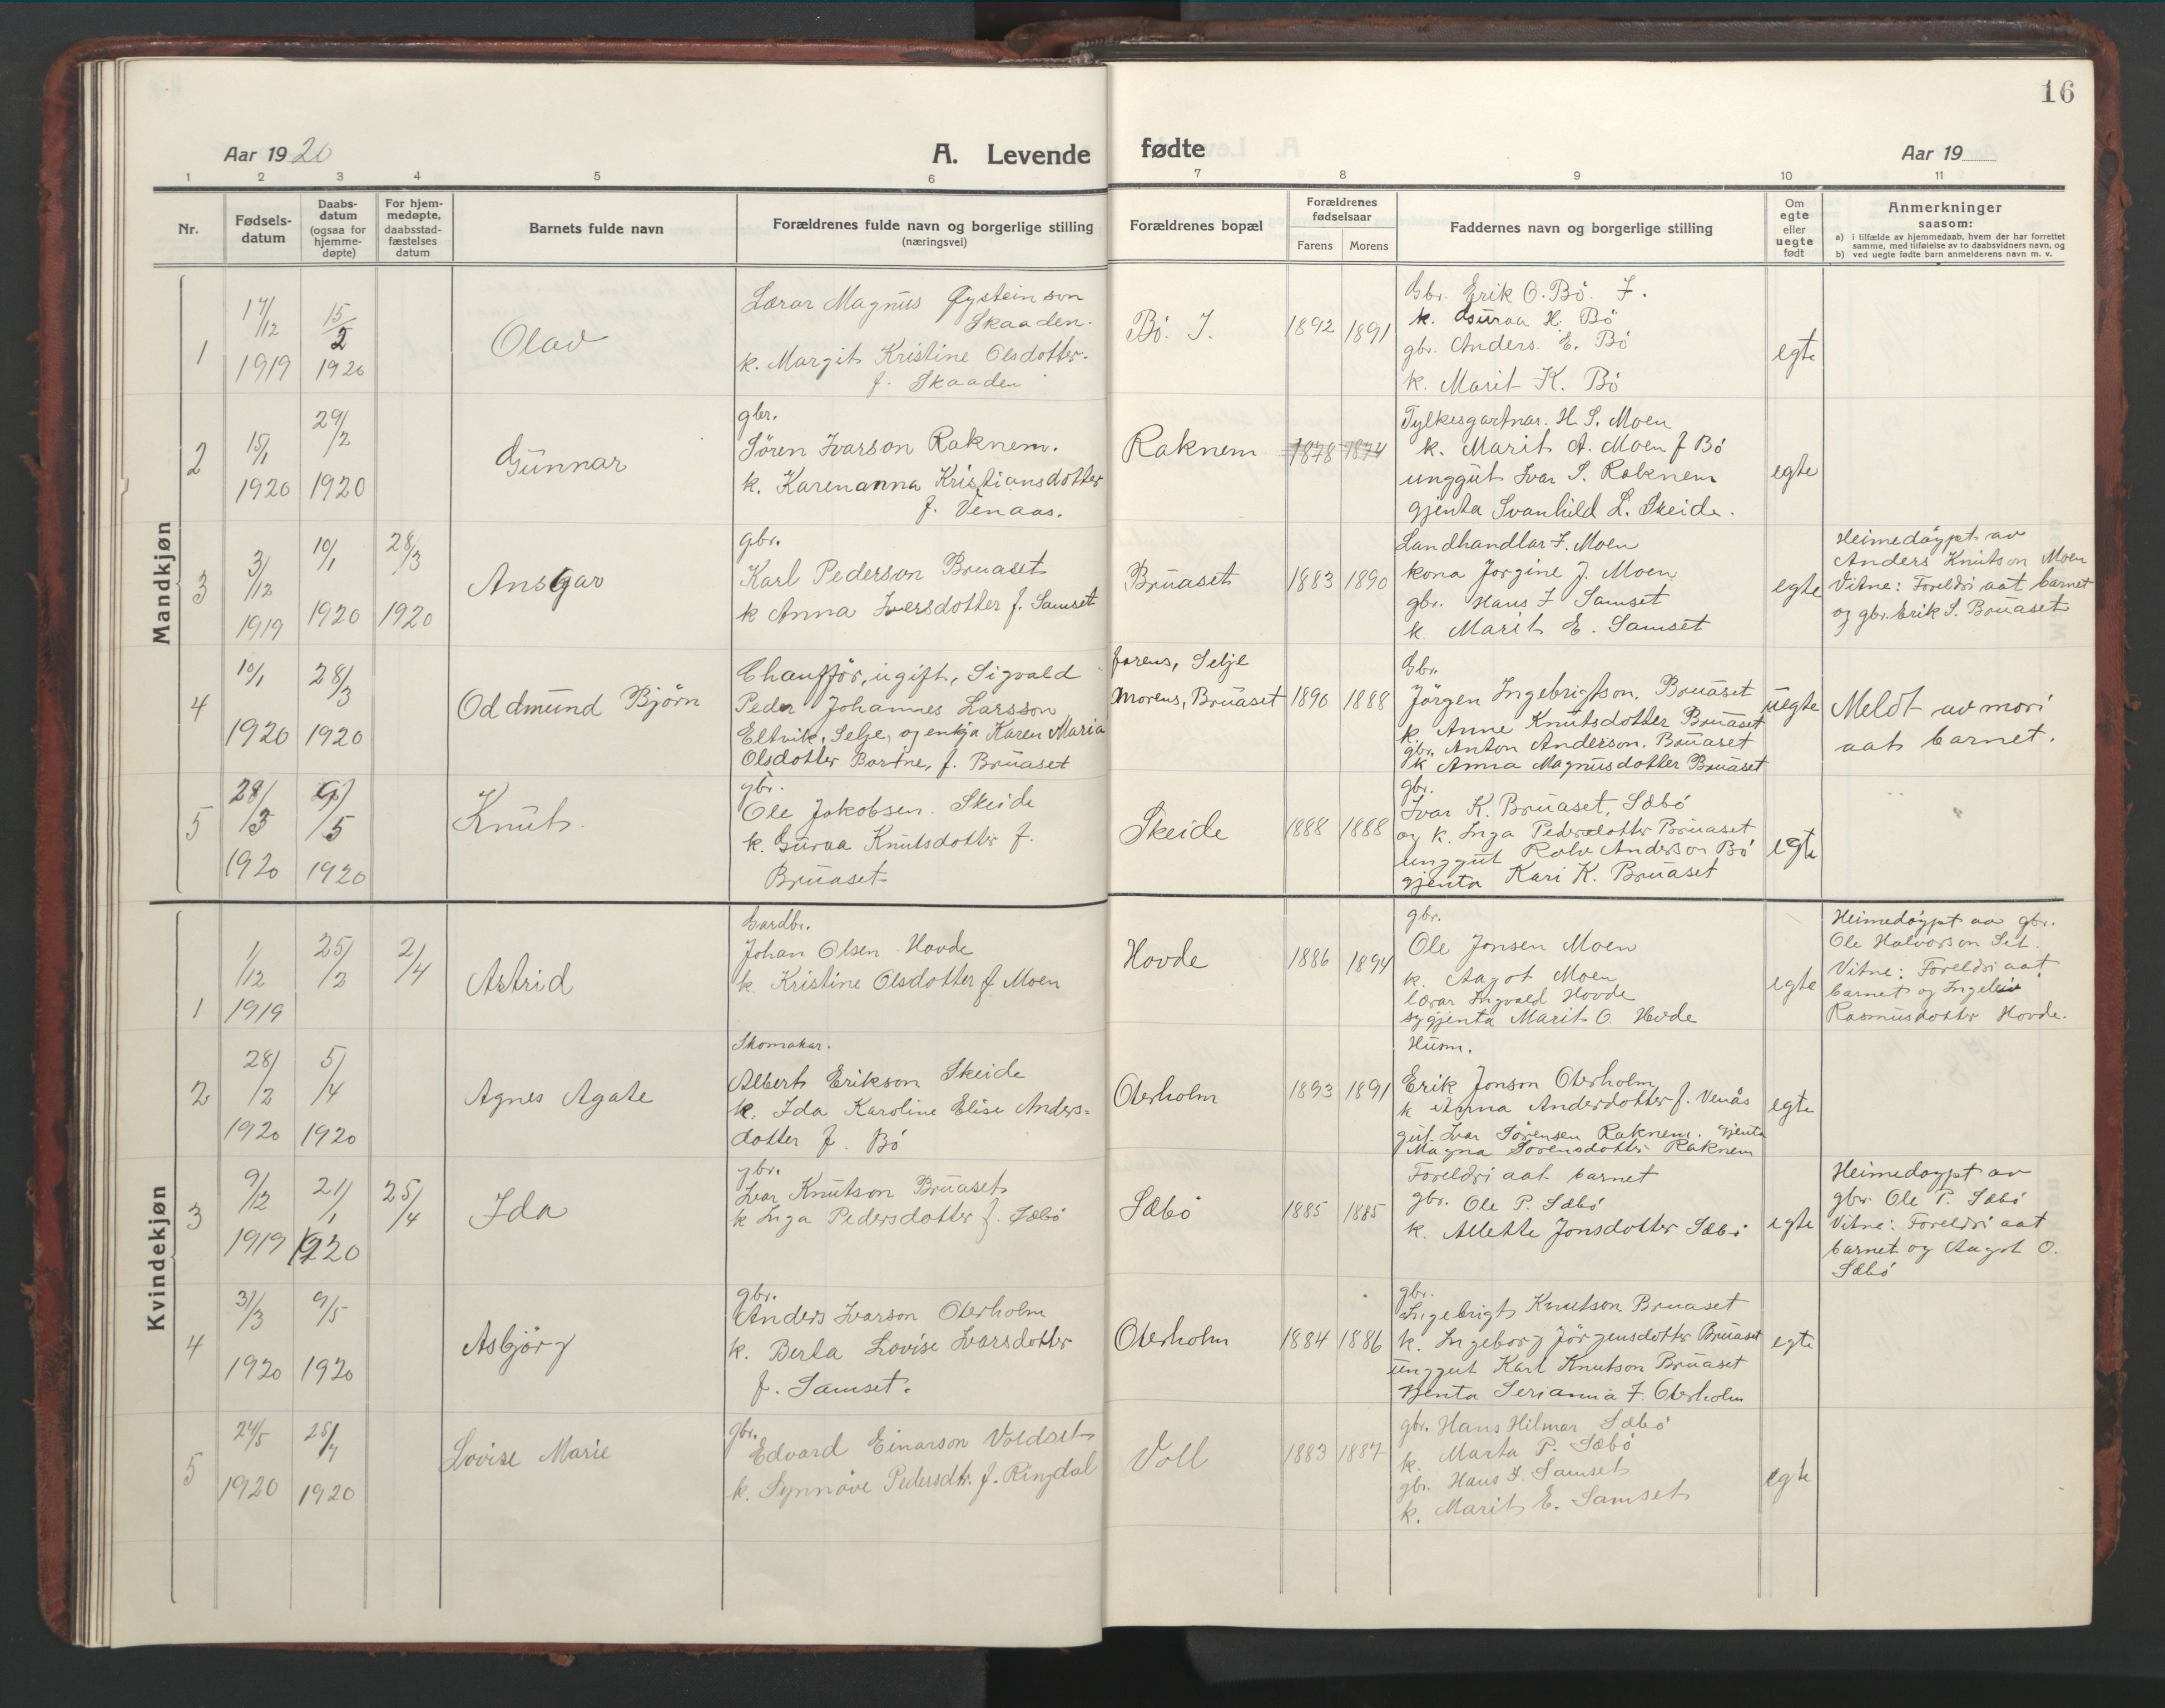 16
Aar 1920
A. Levende
fødte
Aar 19
1 2 3 4 5 6 7 8 9 10 11
Nr.
Fødsels-
datum
Daabs-
datum
(ogsaa for
hjemme-
døpte)
For hjem-
medøpte,
daabsstad-
fæstelses
datum
Barnets fulde navn
Forældrenes fulde navn og borgerlige stilling
(næringsvei)
Forældrenes bopæl
Forældrenes
fødselsaar
Farens Morens
Faddernes navn og borgerlige stilling
Om
egte
eller
uegte
født
Anmerkninger
saasom:
a) i tilfælde av hjemmedaab, hvem der har forrettet
samme, med tilføielse av to daabsvidners navn, og
b) ved uegte fødte barn anmelderens navn m. v.
Mandkjøn
1
17/12
1919
15/2
1920
Olav
Lærar Magnus Øysteinson
Skaaden.
k. Margit Kristine Olsdotter.
f. Skaaden
Bö. I.
1892 1891
Gbr. Erik O. Bö. I.
k. Guraa H. Bö
gbr. Anders. E. Bö
k. Marit K. Bö
egte
2
15/1
1920
29/2
1920
Gunnar
gbr.
Sören Ivarson Raknem.
k. Karenanna Kristiansdotter
f. Venaas.
Raknem
1878 1874
Fylkesgartnar. H. S. Moen
k. Marit A. Moen f Bö
unggut Ivar S. Raknem
gjenta Svanhild L. Skeide.
egte
3
3/12
1919
10/1
1920
28/3
1920
Ansgar
gbr.
Karl Pederson Bruaset
k Anna Iversdotter f. Samset
Bruaset
1883 1890
Landhandlar I. Moen
kona Jorgine J. Moen
gbr. Hans I Samset
k. Marit E. Samset
egte
Heimedöypt av
Anders Knutson Moen
Vitne: Foreldri aat barnet
og gbr. Erik S. Bruaset
4
10/1
1920
28/3
1920
Oddmund Björn
Chaufför, ugift, Sigvald
Peder Johannes Larsson
Eltvik, Selje, og enkja Karen Maria
Olsdotter Bortne, f. Bruaset
farens, Selje
Morens, Bruaset
1890 1888
Gbr.
Jörgen Ingebrigtson. Bruaset
k. Anne Knutsdotter Bruaset
gbr. Anton Anderson. Bruaset
k Anna Magnusdotter Bruaset
uegte
Meldt av mori
aat barnet.
5
28/3
1920
9/5
1920
Knut
gbr.
Ole Jakobsen. Skeide
k. Guraa Knutsdotter f.
Bruaset
Skeide
1888 1888
gbr.
Ivar K. Bruaset, Sæbö
og k. Inga Pedersdotter Bruaset
unggut Rolv Anderson Bö
gjenta Kari K. Bruaset
egte
Kvindekjøn
1
1/12
1919
25/2
2/4
Astrid
Gardbr.
Johan Olsen Hovde
k. Kristine Olsdotter f Moen
Hovde
1886 1894
gbr.
Ole Jonsen Moen
k. Aagot Moen
lærar Ingvald Hovde
sygjenta Marit O. Hovde
egte
Heimedöypt av gbr.
Ole Halvorson Set.
Vitne: Foreldri aat
barnet og Ingeleiv
Rasmusdotter Hovde.
2
28/2
1920
5/4
1920
Agnes Agate
Skomakar.
Albert Erikson Skeide
k. Ida Karoline Elise Anders=
dotter f. Bö
Oterholm
1893 1891
Husm.
Erik Jonson Oterholm
k Anna Anderdotter f. Venås
gut Ivar Sörensen Raknem. gjenta
Magna Sörensdotter Raknem
egte
3
9/12
1919
21/1
1920
25/4
Ida
gbr.
Ivar Knutson Bruaset
k Inga Pedersdotter f. Sæbö
Sæbö
1885 1885
Foreldri aat barnet
gbr. Ole P. Sæbö
k. Allette Jonsdotter Sæbö
egte
Heimedöypt av
gbr. Ole P. Sæbö
Vitne: Foreldri aat
barnet og Aagot O.
Sæbö
4
31/3
1920
9/5
1920
Asbjörg
gbr.
Anders Ivarson Oterholm
k. Berta Lovise Ivarsdotter
f. Samset.
Oterholm
1884 1886
gbr.
Ingebrigt Knutson Bruaset
k. Ingeborg Jörgensdotter Bruaset
unggut Karl Knutson Bruaset
gjenta Serianna I. Oterholm
egte
5
24/5
1920
25/7
1920
Lovise Marie
gbr.
Edvard Einarson Voldset
k. Synnöve Pedersdtr. f. Ringdal
Voll
1883 1887
gbr. Hans Hilmar Sæbö
k. Marta P. Sæbö
gbr. Hans I. Samset
k. Marit E. Samset
egte